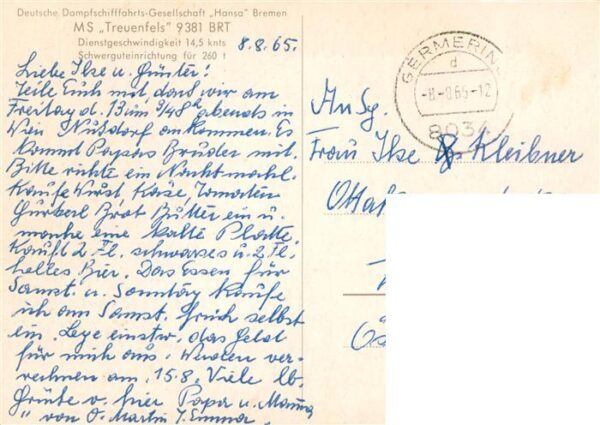 Deutsche Dampfschifffahrts-Gesellschaft „Hansa" Bremen
MS „Treuenfels" 9381 BRT
Dienstgeschwindigkeit 14,5 knts
Schwerguteinrichtung für 260 t
8.8.65.
Liebe Ilse u. Günter!
Teile Euch mit, dass wir am
Freitag d. 13 um 3/48h abends in
Wien Nußdorf ankommen. Es
kommt Papas Bruder mit.
Bitte richte ein Nachtmahl.
Kaufe Wurst, Käse, Tomaten
Gurkerl Brot Butter ein u.
mache eine kalte Platte.
Kauft 2 Fl. schwarzes u. 2 Fl.
helles Bier. Das Essen für
Samst. u. Sonntag kaufe
ich am Samst. früh selbst
ein. Lege einstw. das Geld
für mich aus. Werden ver-
rechnen am 15.8. Viele lb.
Grüße v. hier Papa u. Mama
" von O. Martin T. Emma.
GERMERING
d
-8.-8.65-12
8034
An Sg.
Frau Ilse Kleibner